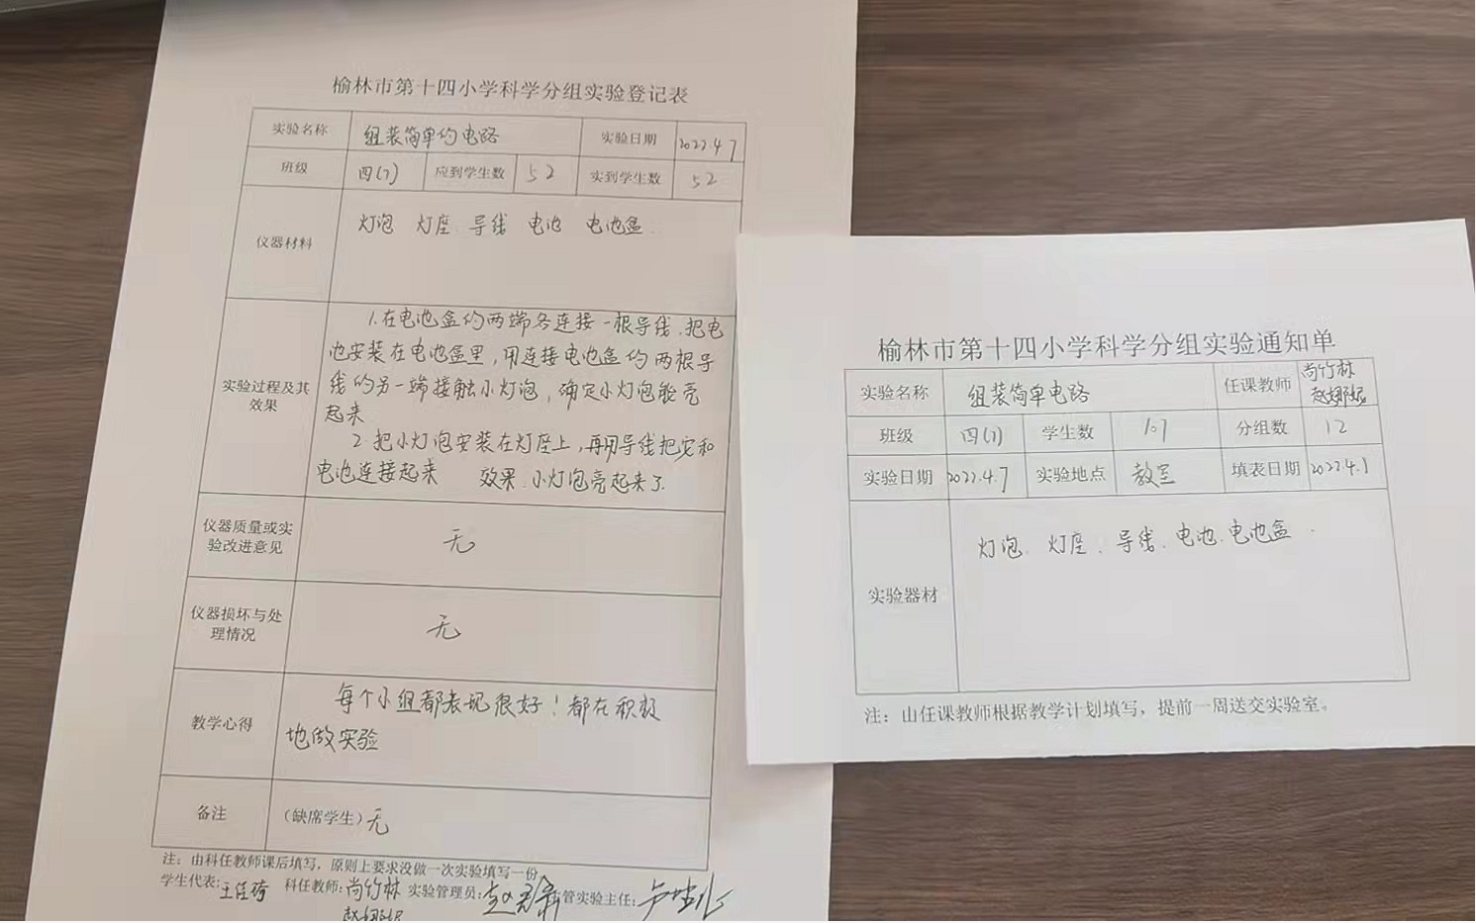 榆林市第十四小学科学分组实验登记表
实验名称 组装简单的电路 实验日期 2022.4.7
班级 四(1) 应到学生数 52 实到学生数 52
仪器材料 灯泡 灯座 导线 电池 电池盒
1.在电池盒的两端各连接一根导线.把电
池安装在电池盒里,用连接电池盒的两根导
实验过程及其效果
线的另一端接触小灯泡,确定小灯泡能亮
起来
2.把小灯泡安装在灯座上,再用导线把它和
电池连接起来 效果.小灯泡亮起来了.
仪器质量或实验改进意见 无
仪器损坏与处理情况 无
教学心得 每个小组都表现很好!都在积极
地做实验
备注 (缺席学生)无
注:由科任教师课后填写,原则上要求没做一次实验填写一份
学生代表: 科任教师:尚竹林 实验管理员: 管实验主任:
榆林市第十四小学科学分组实验通知单
实验名称 组装简单电路 任课教师 尚竹林
班级 四(1) 学生数 分组数 12
实验日期 2022.4.7 实验地点 教室 填表日期 2022.4.1
实验器材 灯泡.灯座.导线.电池.电池盒.
注:由任课教师根据教学计划填写,提前一周送交实验室。